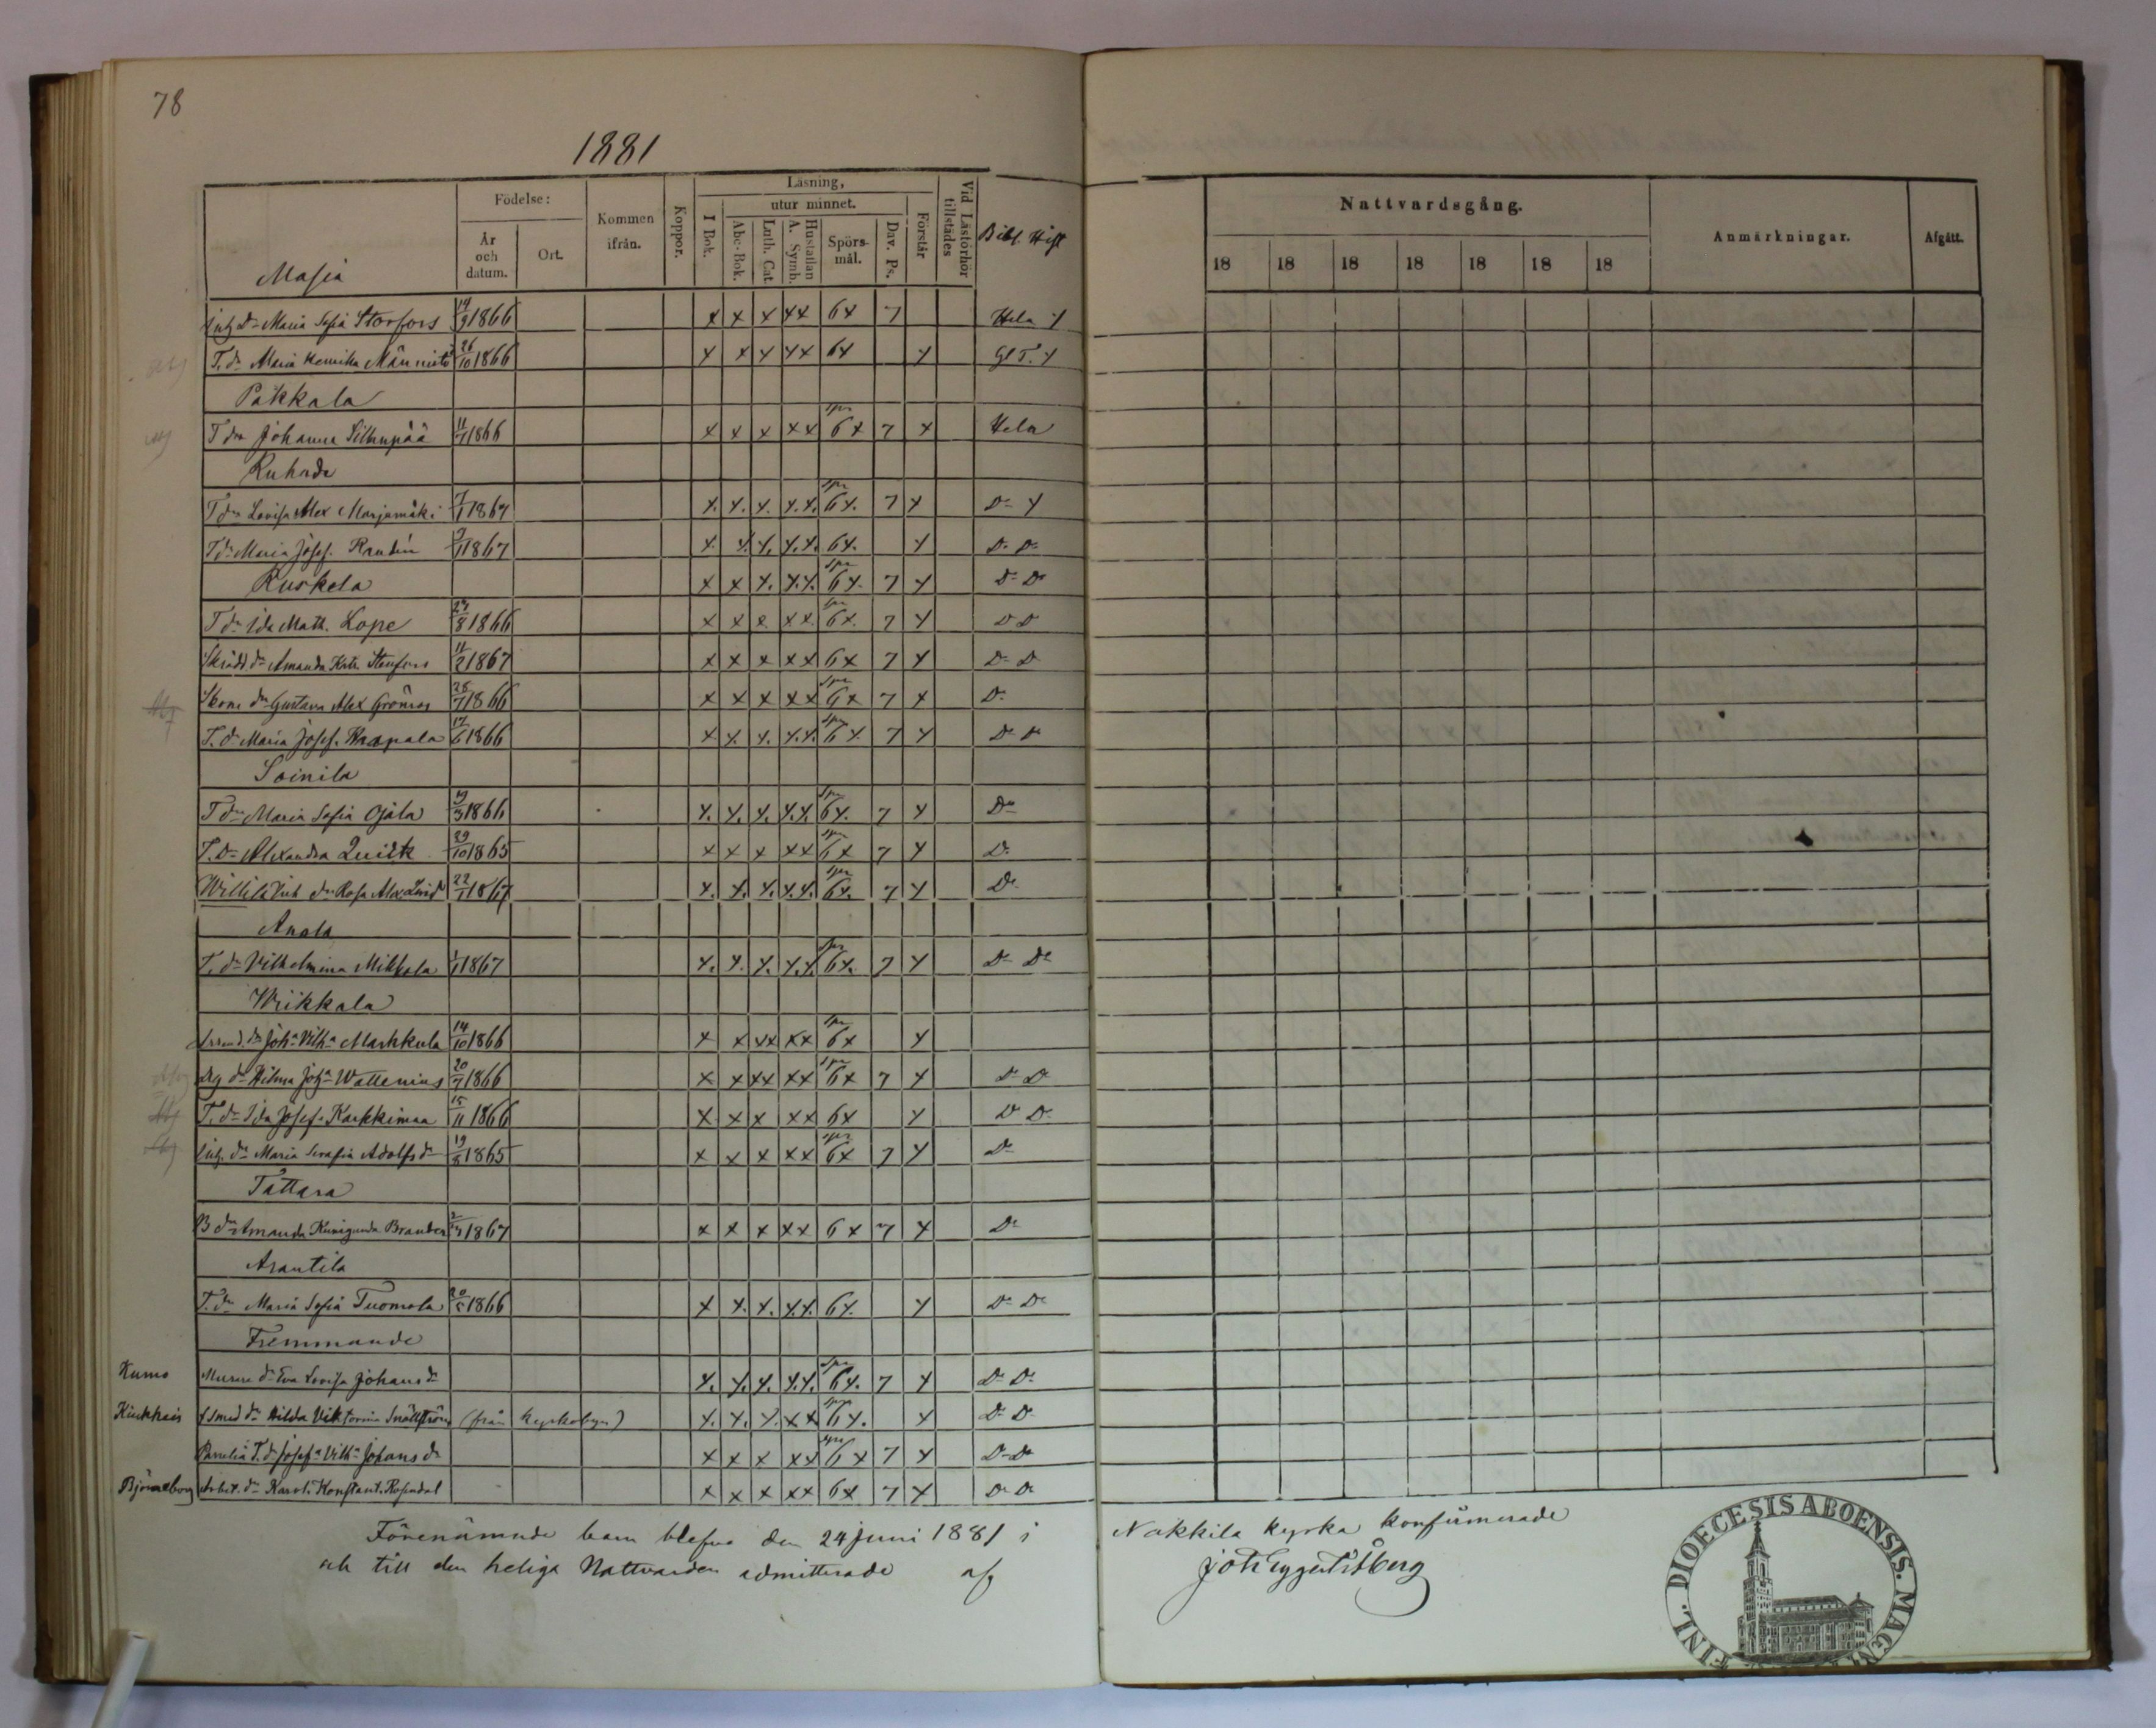 78
1881
Födelse:
År och datum.
Ort.
Kommen ifrån.
Koppor.
Läsning,
I Bok.
utur minnet.
Abc-Bok.
Luth. Cat.
Hustaflan A. Symb.
Spörsmål.
Dav. Ps.
Förstår
Vid Läsförhör tillstädes
Bibl. Hist
Nattvardsgång.
18 18 18 18 18 18 18
Anmärkningar.
Afgått.
Masia
Inh dr Maria Sofia Storfors 19/9 1866 x x x xx 6x 7 Hela x
T. dr Maria Henrika Männistö 26/10 1866 x x x xx 6x x Gl T. x
Pakkala
T dr Johanna Silhupää 11/7 1866 x x x xx spr 6x 7 x Hela
Ruhade
T dr Lovisa Alex Marjamäki 7/1 1867 x. x. x. x.x. spr 6x. 7 x Do x
T dr Maria Josef. Rantin 1867 x. x. x. x.x. 6x. x Do Do
Ruskela x x x. x.x. spr 6x. 7 x Do Do
T dr Ida Math. Lope 1866 x x x xx spr 6x. 7 x Do Do
Skrädd dr Amanda Kat. Stenfors 11/2 1867 x x x xx 6x 7 x Do Do
Skom dr Gustava Alex Grönros 28/7 1866 x x x xx spr 6x 7 x Do
T. dr Maria Josef. Haapala 17/6 1866 x x. x. x.x. spr 6x. 7 x Do Do
Soinila
T dr Maria Sofia Ojala 19/3 1866 x. x. x. x.x. spr 6x. 7 x Do
T. dr Alexandra Quick 29/10 1865 x x x xx spr 6x 7 x Do
Willila Inh dr Rosa Alex 22/1 1867 x. x. x. x.x. spr 6x. 7 x Do
Anola
T. dr Vilhelmina Mikkola 1/1 1867 x. x. x. x.x. spr 6x. 7 x Do Do
Wiikkala
dr Joha Vilha Markkula 14/10 1866 x x xx xx spr 6x x
dr Hilma Joha Wallenius 20/7 1866 x x xx xx spr 6x 7 x Do Do
T. dr Ida Josef. Karkkimaa 15/11 1866 x x x xx 6x x Do Do
Inh. dr Maria Serafia Adolfs dr 19/8 1865 x x x xx spr 6x 7 x Do
Tattara
B dr Amanda Kunigunda Brander 2/3 1867 x x x xx 6x 7 x Do
Arantila
T. dr Maria Sofia Tuomola 20/5 1866 x x. x. x.x. 6x. x Do Do
Fremmande
Kumo Murare dr Eva Lovisa Johans dr x. x. x. x.x. spr 6x. 7 x Do Do
Kiukkais smed dr Hilda Viktorina Snällström (från kyrkobyn) x. x. x. xx spr 6x. x Do Do
Panelia T. dr Josefa Vilha Johans dr x x x xx spr 6x 7 x Do Do
Björneborg Arbet. dr Karol. Konstant. Rosendal x x x xx 6x 7 x Do Do
Förenämnde barn blefvo den 24 juni 1881 i Nakkila kyrka konfirmerade
och till den heliga Nattvarden admitterade af
FINL. DIOECESIS ABOENSIS. MAGNI